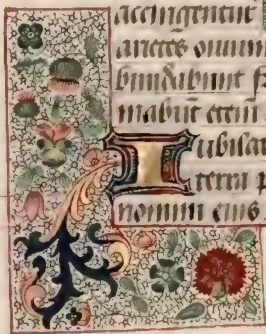 accingentur
arietes ovium
bundabunt f
mabūt etenī
Iubilat
terra p
nomini eius